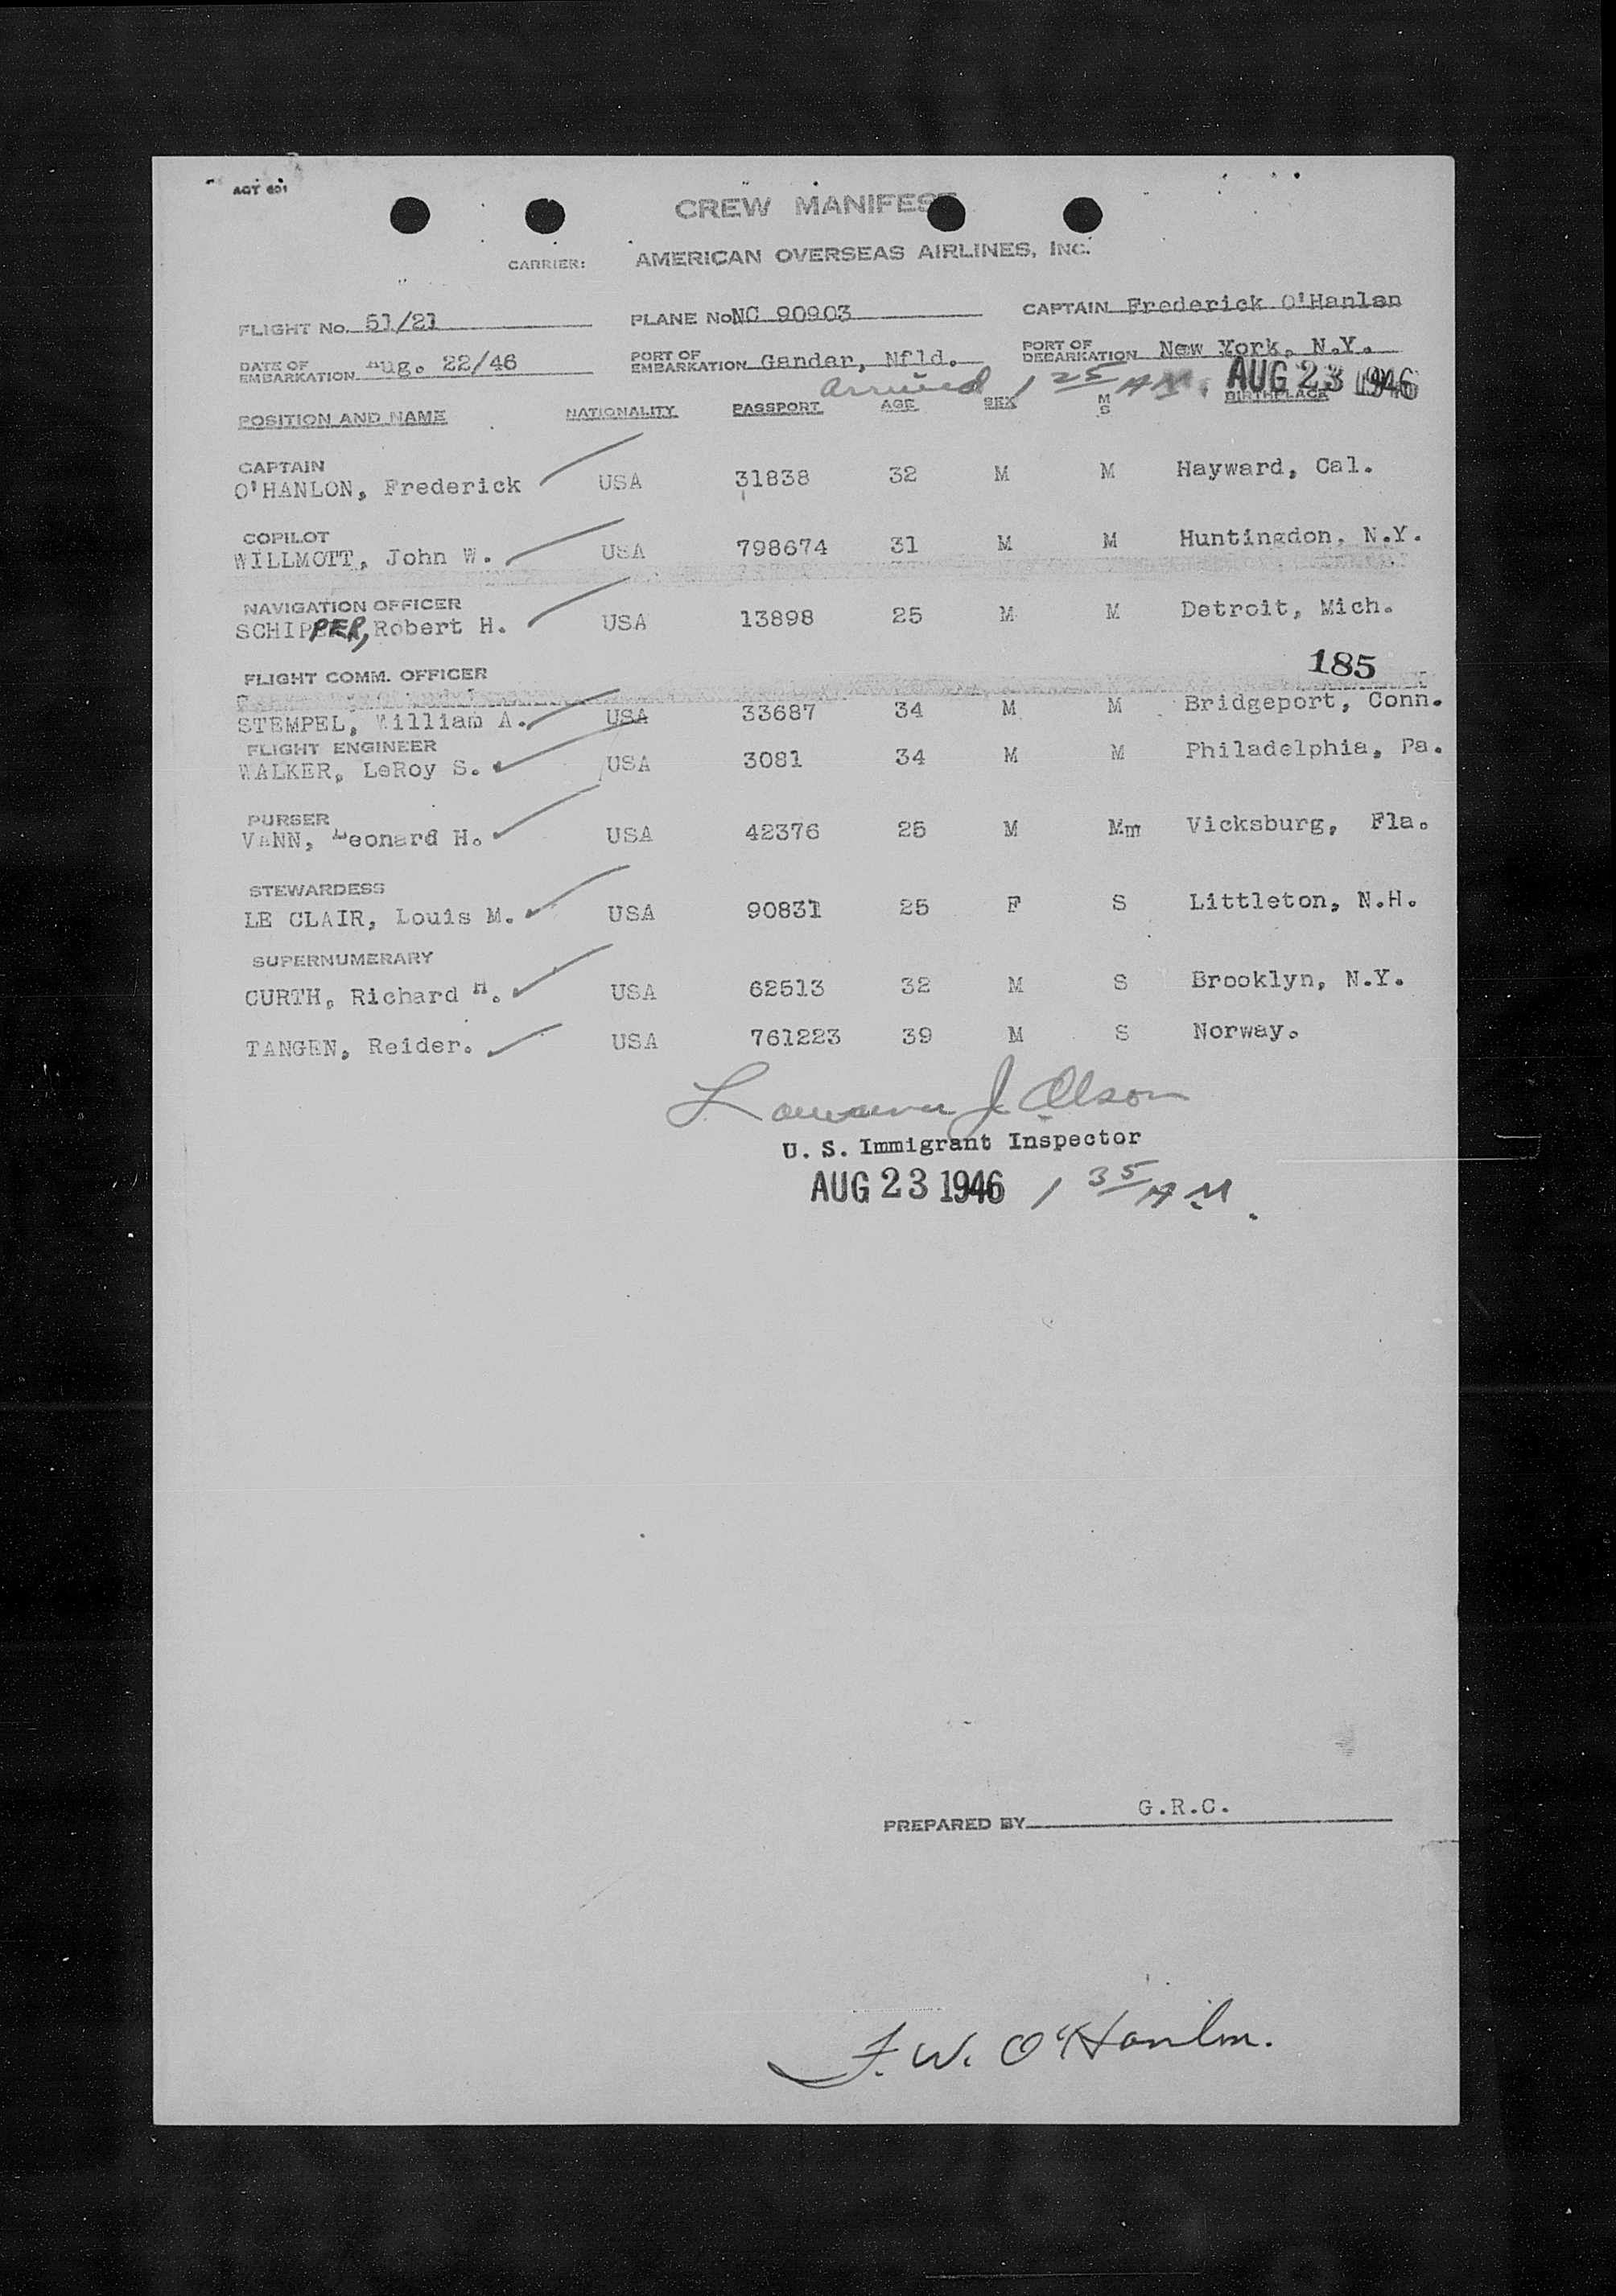 AOT 601
CREW MANIFEST
CARRIER: AMERICAN OVERSEAS AIRLINES, INC.
FLIGHT No. 51/21 PLANE No. NC 90903 CAPTAIN Frederick O'Hanlon
DATE OF EMBARKATION Aug. 22/46 PORT OF EMBARKATION Gander, Nfld. PORT OF DEBARKATION New York, N.Y.
arrived 1 25 AM. AUG 23 1946
POSITION AND NAME NATIONALITY PASSPORT AGE SEX M S BIRTHPLACE
CAPTAIN
O'HANLON, Frederick USA 31838 32 M M Hayward, Cal.
COPILOT
WILLMOTT, John W. USA 798674 31 M M Huntingdon, N.Y.
NAVIGATION OFFICER
SCHIPPER, Robert H. USA 13898 25 M M Detroit, Mich.
185
FLIGHT COMM. OFFICER
STEMPEL, William A. USA 33687 34 M M Bridgeport, Conn.
FLIGHT ENGINEER
WALKER, LeRoy S. USA 3081 34 M M Philadelphia, Pa.
PURSER
VANN, Leonard H. USA 42376 25 M Mm Vicksburg, Fla.
STEWARDESS
LE CLAIR, Louis M. USA 90831 25 F S Littleton, N.H.
SUPERNUMERARY
CURTH, Richard H. USA 62513 32 M S Brooklyn, N.Y.
TANGEN, Reider. USA 761223 39 M S Norway.
J. Olson
U. S. Immigrant Inspector
AUG 23 1946 1 35 AM.
PREPARED BY G.R.C.
F. W. O'Hanlon.